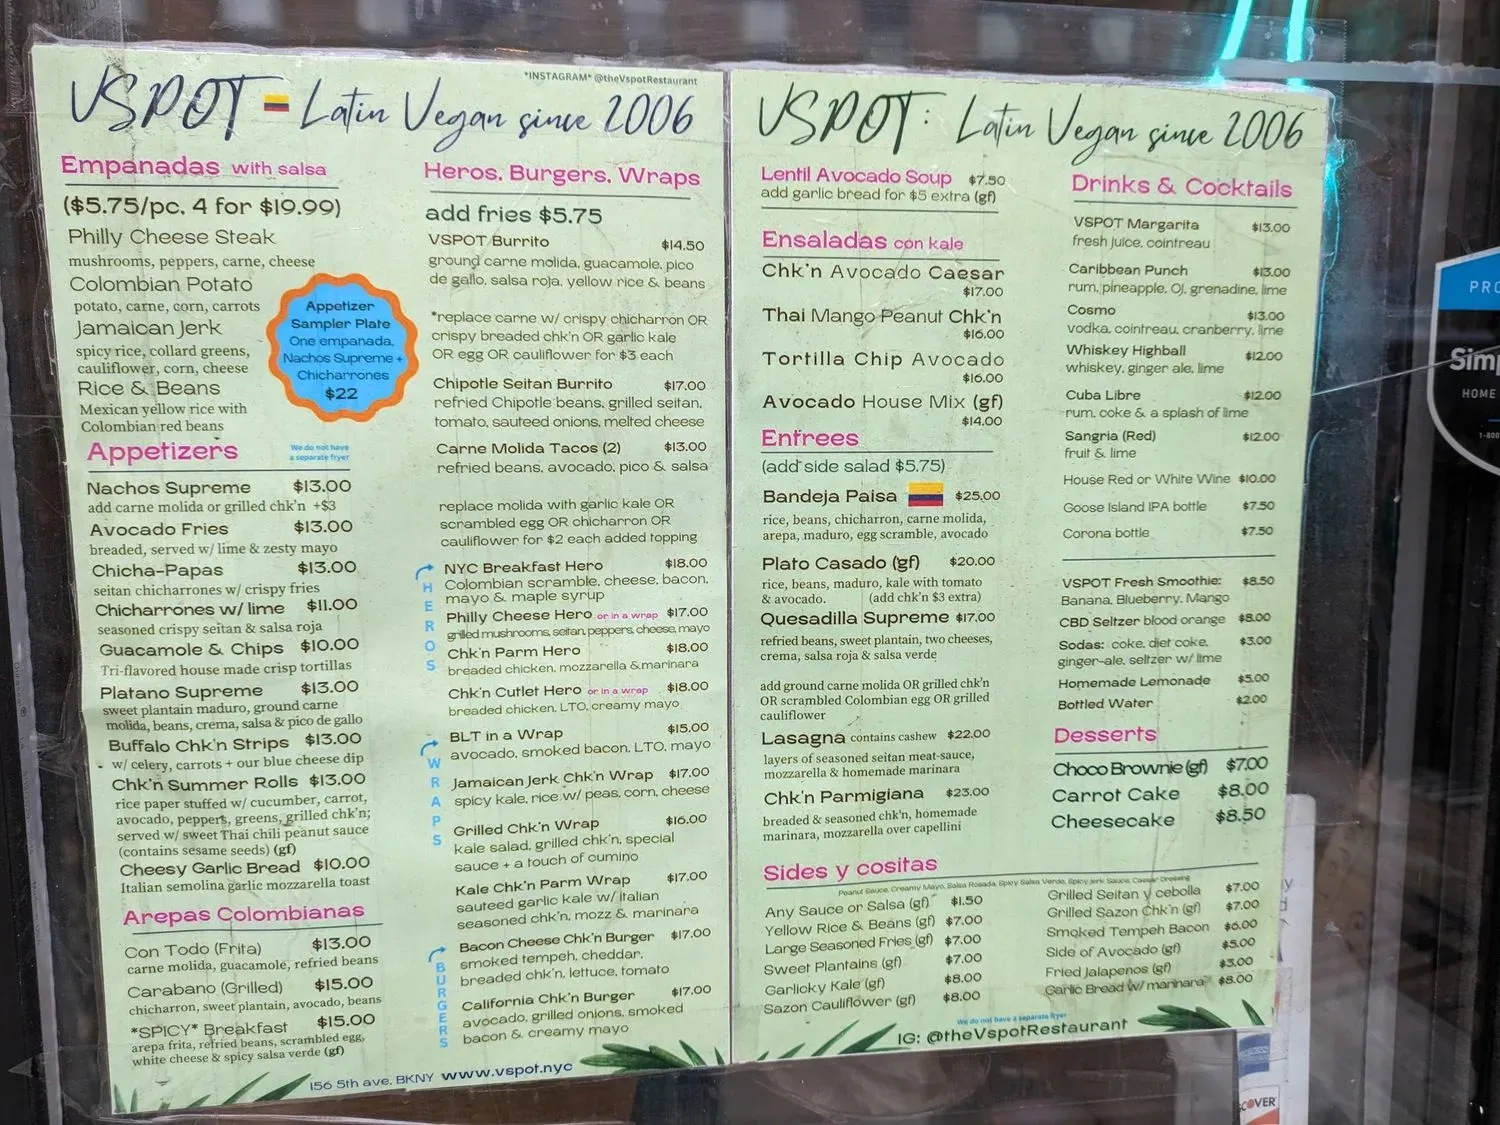 *INSTAGRAM* @theVspotRestaurant
VSPOT Latin Vegan since 2006
Empanadas with salsa
($5.75/pc, 4 for $19.99)
Philly Cheese Steak
mushrooms, peppers, carne, cheese
Colombian Potato
potato, carne, corn, carrots
Jamaican Jerk
spicy rice, collard greens,
cauliflower, corn, cheese
Rice & Beans
Mexican yellow rice with
Colombian red beans
Appetizer
Sampler Plate
One empanada,
Nachos Supreme +
Chicharrones
$22
Appetizers
We do not have
a separate fryer
Nachos Supreme $13.00
add carne molida or grilled chk'n +$3
Avocado Fries $13.00
breaded, served w/ lime & zesty mayo
Chicha-Papas $13.00
seitan chicharrones w/ crispy fries
Chicharrones w/ lime $11.00
seasoned crispy seitan & salsa roja
Guacamole & Chips $10.00
Tri-flavored house made crisp tortillas
Platano Supreme $13.00
sweet plantain maduro, ground carne
molida, beans, crema, salsa & pico de gallo
Buffalo Chk'n Strips $13.00
w/ celery, carrots + our blue cheese dip
Chk'n Summer Rolls $13.00
rice paper stuffed w/ cucumber, carrot,
avocado, peppers, greens, grilled chk'n;
served w/ sweet Thai chili peanut sauce
(contains sesame seeds) (gf)
Cheesy Garlic Bread $10.00
Italian semolina garlic mozzarella toast
Arepas Colombianas
Con Todo (Frita) $13.00
carne molida, guacamole, refried beans
Carabano (Grilled) $15.00
chicharron, sweet plantain, avocado, beans
*SPICY* Breakfast $15.00
arepa frita, refried beans, scrambled egg,
white cheese & spicy salsa verde (gf)
Heros, Burgers, Wraps
add fries $5.75
VSPOT Burrito $14.50
ground carne molida, guacamole, pico
de gallo, salsa roja, yellow rice & beans
*replace carne w/ crispy chicharron OR
crispy breaded chk'n OR garlic kale
OR egg OR cauliflower for $3 each
Chipotle Seitan Burrito $17.00
refried Chipotle beans, grilled seitan,
tomato, sauteed onions, melted cheese
Carne Molida Tacos (2) $13.00
refried beans, avocado, pico & salsa
replace molida with garlic kale OR
scrambled egg OR chicharron OR
cauliflower for $2 each added topping
HEROS
NYC Breakfast Hero $18.00
Colombian scramble, cheese, bacon,
mayo & maple syrup
Philly Cheese Hero or in a wrap $17.00
grilled mushrooms, seitan, peppers, cheese, mayo
Chk'n Parm Hero $18.00
breaded chicken, mozzarella & marinara
Chk'n Cutlet Hero or in a wrap $18.00
breaded chicken, LTO, creamy mayo
WRAPS
BLT in a Wrap $15.00
avocado, smoked bacon, LTO, mayo
Jamaican Jerk Chk'n Wrap $17.00
spicy kale, rice w/ peas, corn, cheese
Grilled Chk'n Wrap $16.00
kale salad, grilled chk'n, special
sauce + a touch of cumino
Kale Chk'n Parm Wrap $17.00
sauteed garlic kale w/ italian
seasoned chk'n, mozz & marinara
BURGERS
Bacon Cheese Chk'n Burger $17.00
smoked tempeh, cheddar,
breaded chk'n, lettuce, tomato
California Chk'n Burger $17.00
avocado, grilled onions, smoked
bacon & creamy mayo
156 5th ave, BKNY www.vspot.nyc
VSPOT: Latin Vegan since 2006
Lentil Avocado Soup $7.50
add garlic bread for $5 extra (gf)
Ensaladas con kale
Chk'n Avocado Caesar
$17.00
Thai Mango Peanut Chk'n
$16.00
Tortilla Chip Avocado
$16.00
Avocado House Mix (gf)
$14.00
Entrees
(add side salad $5.75)
Bandeja Paisa $25.00
rice, beans, chicharron, carne molida,
arepa, maduro, egg scramble, avocado
Plato Casado (gf) $20.00
rice, beans, maduro, kale with tomato
& avocado. (add chk'n $3 extra)
Quesadilla Supreme $17.00
refried beans, sweet plantain, two cheeses,
crema, salsa roja & salsa verde
add ground carne molida OR grilled chk'n
OR scrambled Colombian egg OR grilled
cauliflower
Lasagna contains cashew $22.00
layers of seasoned seitan meat-sauce,
mozzarella & homemade marinara
Chk'n Parmigiana $23.00
breaded & seasoned chk'n, homemade
marinara, mozzarella over capellini
Drinks & Cocktails
VSPOT Margarita $13.00
fresh juice, cointreau
Caribbean Punch $13.00
rum, pineapple, OJ, grenadine, lime
Cosmo $13.00
vodka, cointreau, cranberry, lime
Whiskey Highball $12.00
whiskey, ginger ale, lime
Cuba Libre $12.00
rum, coke & a splash of lime
Sangria (Red) $12.00
fruit & lime
House Red or White Wine $10.00
Goose Island IPA bottle $7.50
Corona bottle $7.50
VSPOT Fresh Smoothie: $8.50
Banana, Blueberry, Mango
CBD Seltzer blood orange $8.00
Sodas: coke, diet coke, $3.00
ginger-ale, seltzer w/ lime
Homemade Lemonade $5.00
Bottled Water $2.00
Desserts
Choco Brownie (gf) $7.00
Carrot Cake $8.00
Cheesecake $8.50
Sides y cositas
Peanut Sauce, Creamy Mayo, Salsa Rosada, Spicy Salsa Verde, Spicy Jerk Sauce, Caesar Dressing
Any Sauce or Salsa (gf) $1.50
Yellow Rice & Beans (gf) $7.00
Large Seasoned Fries (gf) $7.00
Sweet Plantains (gf) $7.00
Garlicky Kale (gf) $8.00
Sazon Cauliflower (gf) $8.00
Grilled Seitan y cebolla $7.00
Grilled Sazon Chk'n (gf) $7.00
Smoked Tempeh Bacon $6.00
Side of Avocado (gf) $5.00
Fried Jalapenos (gf) $3.00
Garlic Bread w/ marinara $8.00
We do not have a separate fryer
IG: @theVspotRestaurant
PRO
Simp
HOME
1-800
COVER